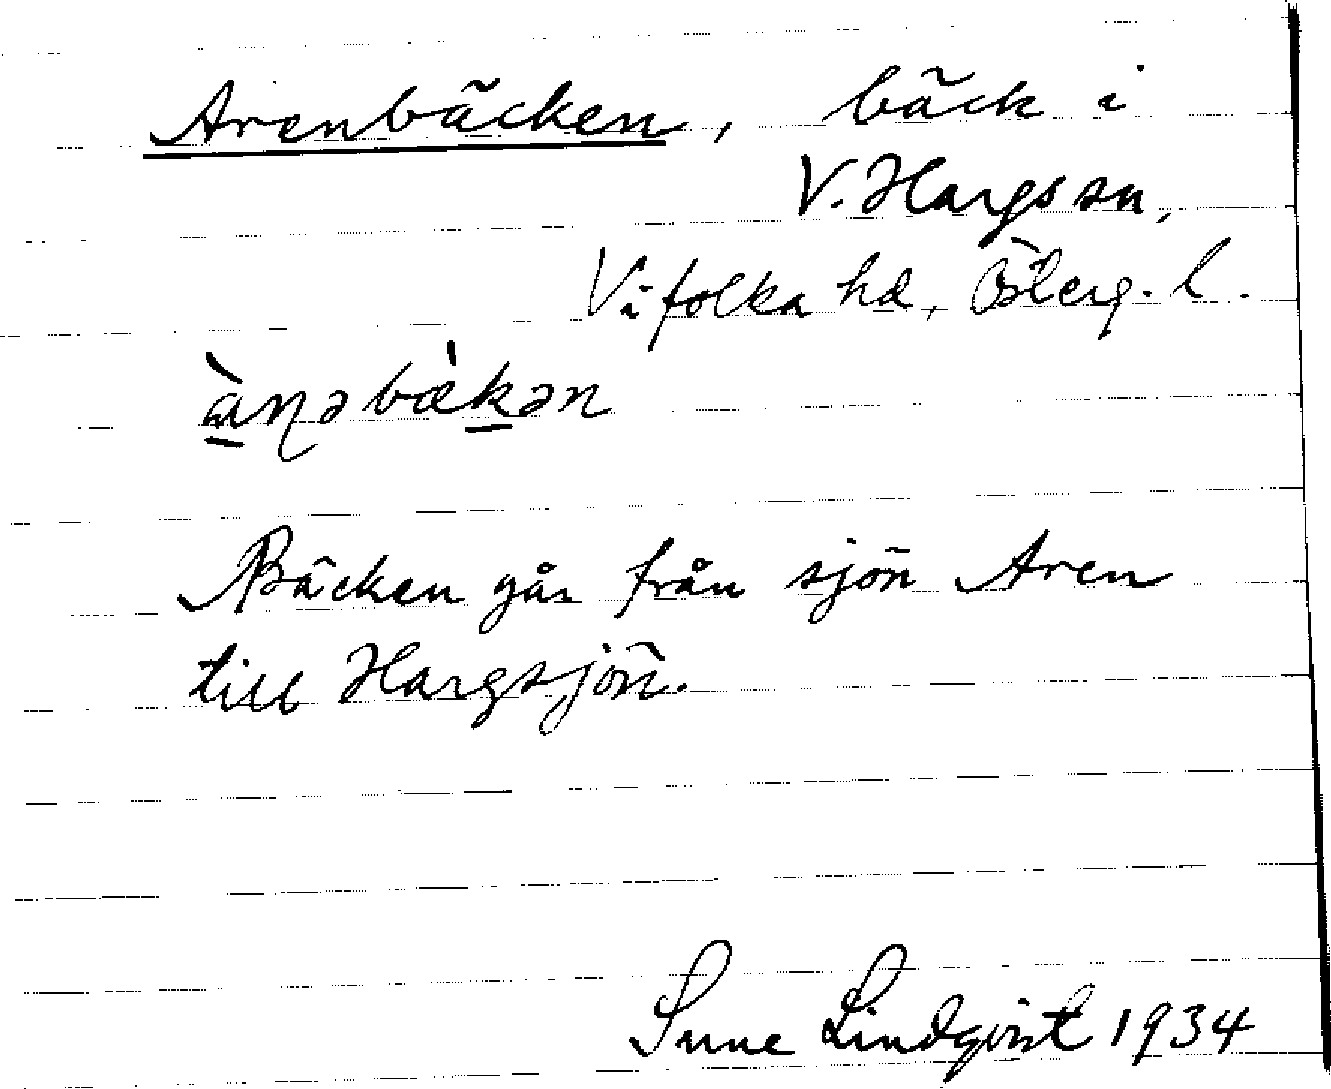 Arenbäcken, bäck i
V. Hargs sn,
Vifolka hd, Österg. l.
àṉəbæ̀ḵən
Bäcken går från sjön Aren
till Hargsjön.
Sune Lindqvist 1934